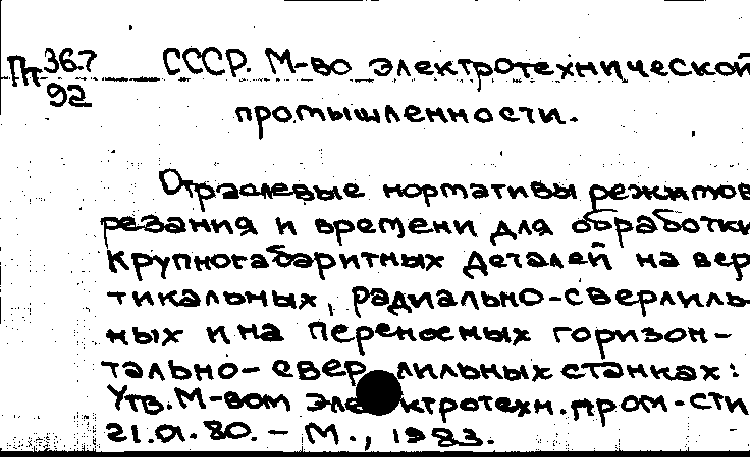 Пт 36.7 СССР. М-во электротехнической
92
промышленности.
Отраслевые нормативы режимов
резания и времени для обработки
крупногабаритных деталей на вер
тикальных, радиально-сверлиль
ных и на переносных горизон-
тально-сверлильных станках:
Утв. М-вом электротехн. пром-сти
21.01.80. – М., 1983.